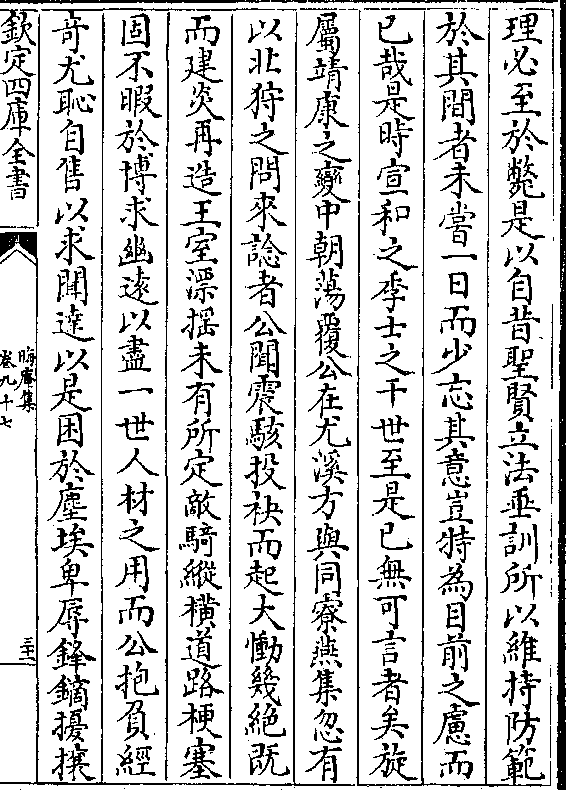 理必至於斃是以自昔聖賢立法垂訓所以維持防範
於其間者未嘗一日而少忘其意豈特為目前之慮而
已哉是時宣和之季士之干世至是已無可言者矣旋
屬靖康之變中朝蕩覆公在尤溪方與同寮燕集忽有
以北狩之問來諗者公聞震駭投袂而起大慟幾絶既
而建炎再造王室漂揺未有所定敵騎縱橫道路梗塞
固不暇於博求幽逺以盡一世人材之用而公抱負經
竒尤恥自售以求聞達以是困於塵埃卑辱鋒鏑擾攘
欽定四庫全書
晦庵集
卷九十七
三十一